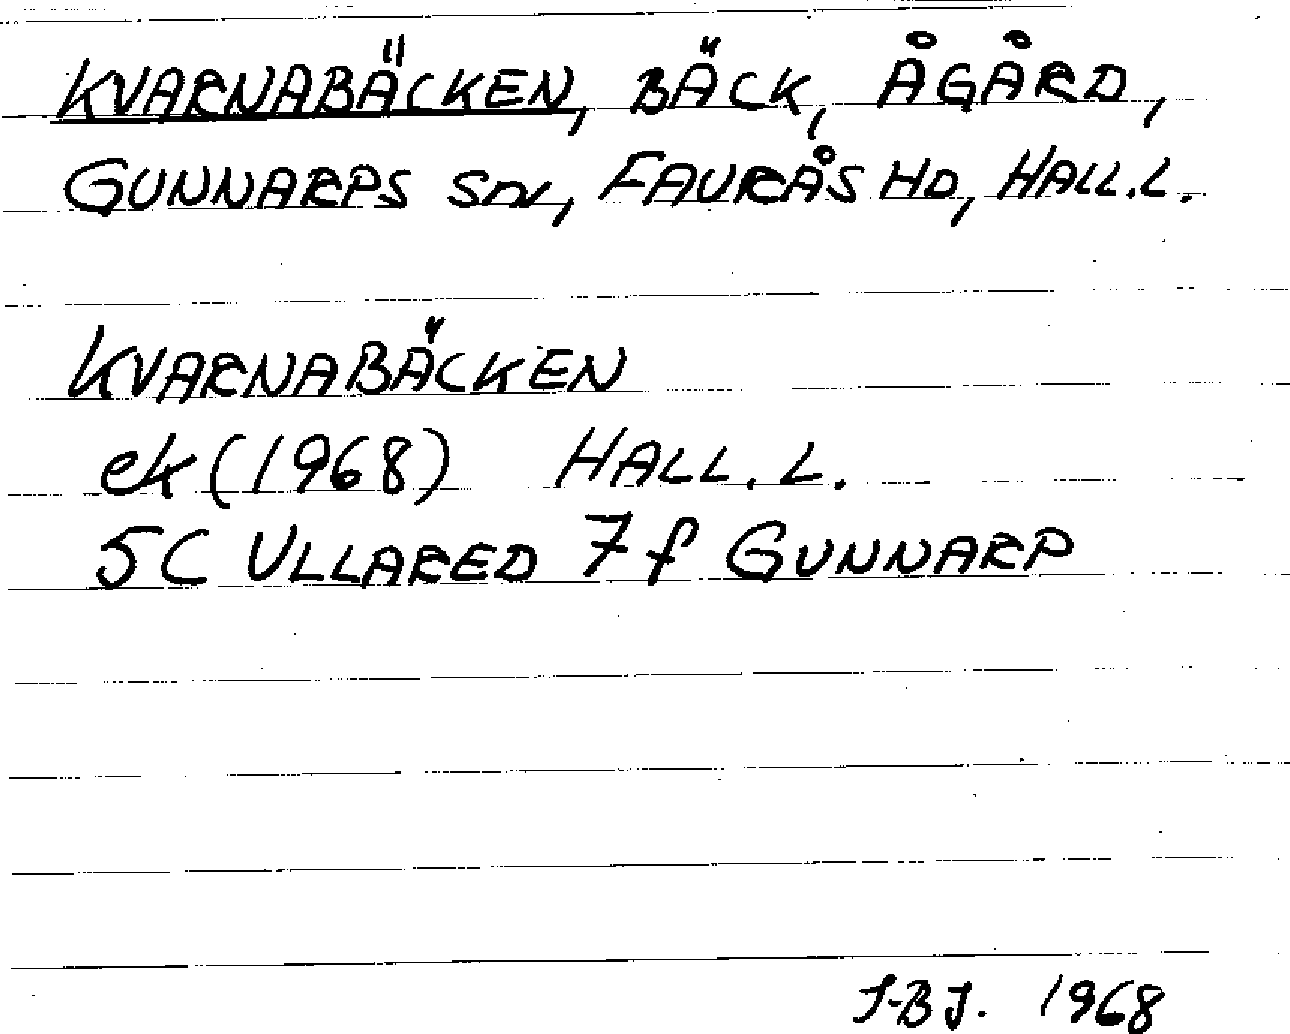 KVARNABÄCKEN, BÄCK, ÅGÅRD,
GUNNARPS SN, FAURÅS HD, HALL.L.
KVARNABÄCKEN
ek (1968) HALL. L.
5C ULLARED 7f GUNNARP
J-BJ. 1968